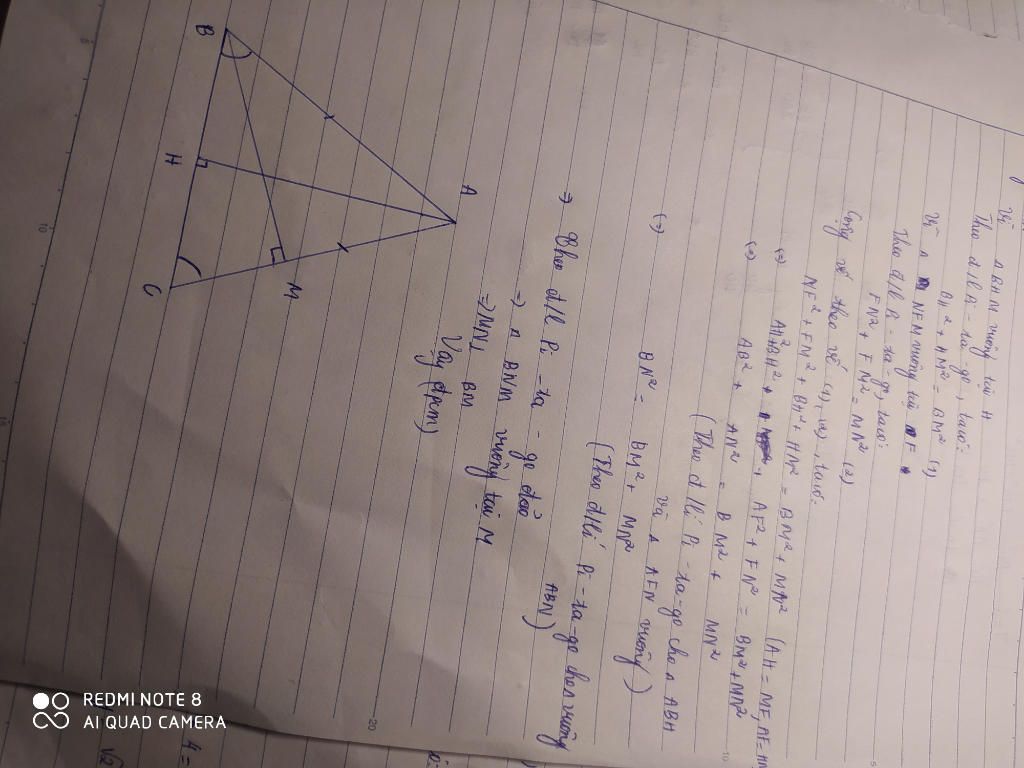 Vì Δ BHM vuông tại H
Theo đ/l Pi-ta-go, ta có:
BH² + HM² = BM² (1)
Vì Δ NFM vuông tại F
Theo đ/l Pi-ta-go, ta có:
FN² + FM² = MN² (2)
Cộng vế theo vế (1), (2), ta có:
NF² + FM² + BH² + HM² = BM² + MN²
(=) AH² + BH² + AF² + FN² = BM² + MN² (AH = MF, AF = HM
(=) AB² + AN² = BM² + MN²
(Theo đ/lí Pi-ta-go cho Δ ABH
và Δ AFN vuông)
(=) BN² = BM² + MN²
(Theo đ/lí Pi-ta-go cho Δ vuông
ABN)
=) Theo đ/l Pi-ta-go đảo
=) Δ BNM vuông tại M
=) MN ⊥ BM
Vậy (đpcm)
A
B
H
M
C
REDMI NOTE 8
AI QUAD CAMERA